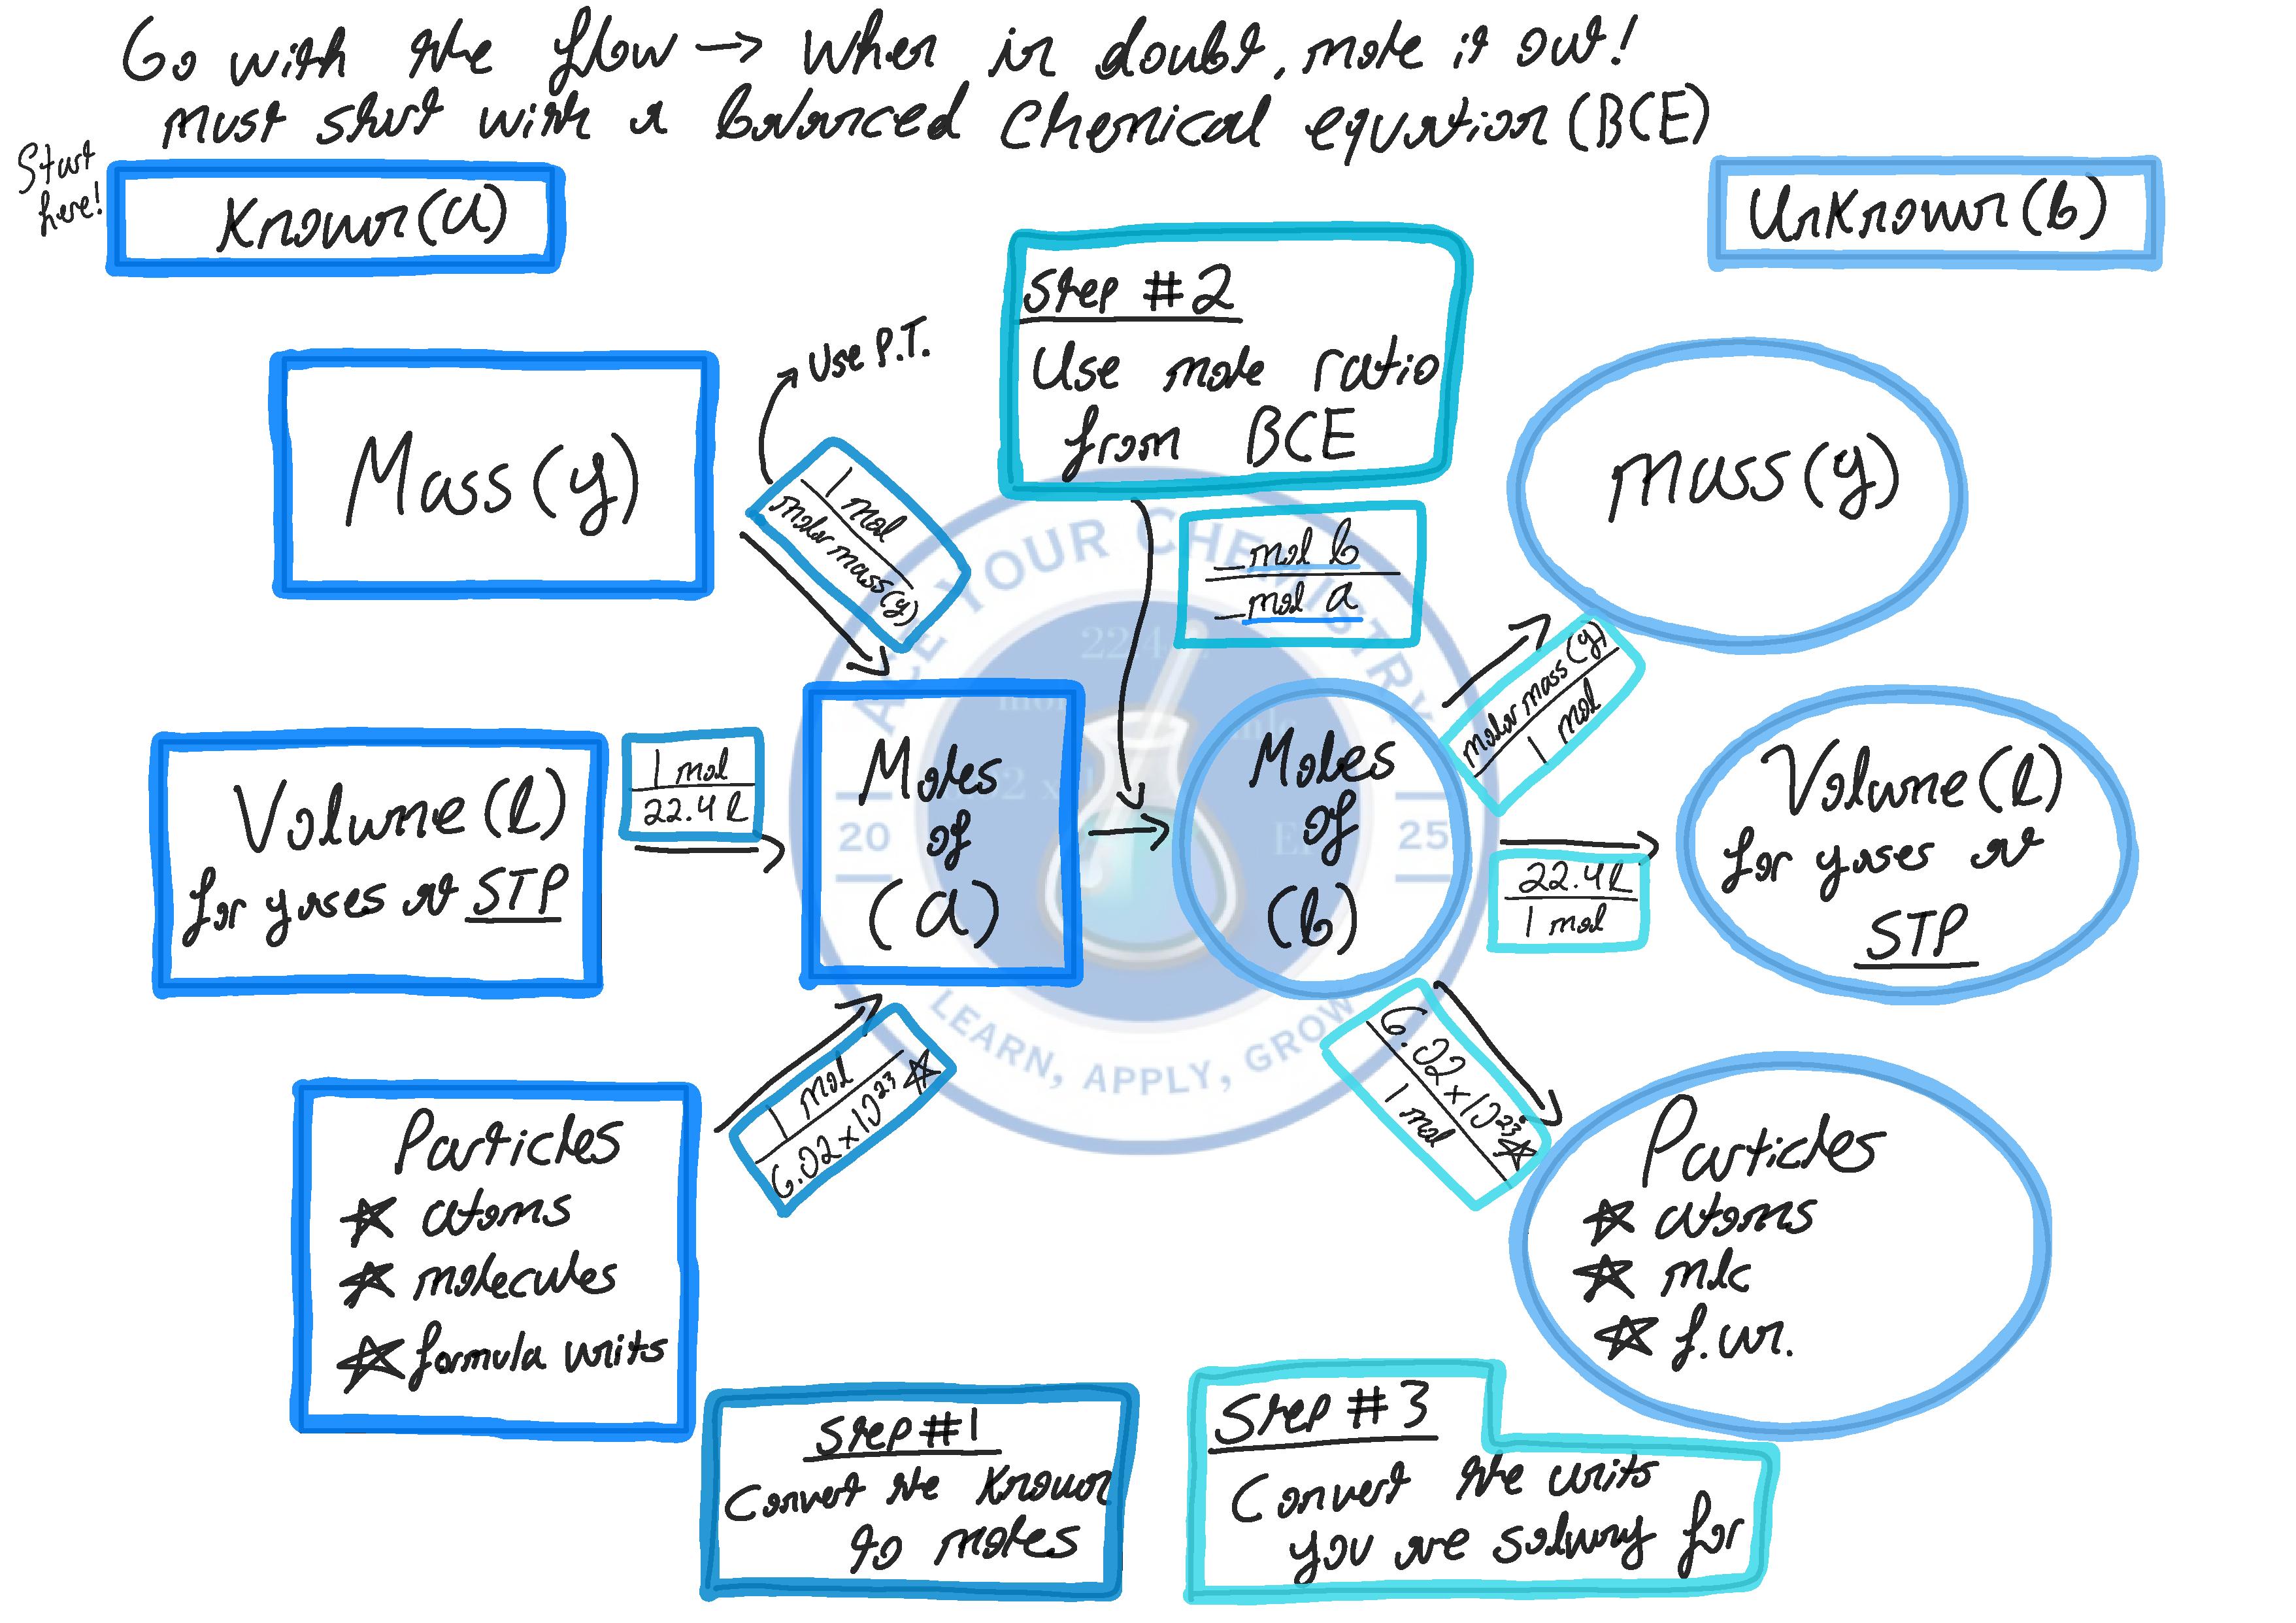 Go with the flow → When in doubt, mole it out!
must start with a balanced chemical equation (BCE)
Start
here!
Known (a)
Unknown (b)
Step #2
Use mole ratio
from BCE
Use P.T.
Mass (g)
1 mol
molar mass (g)
mol b
mol a
mass (g)
molar mass (g)
1 mol
Volume (L)
for gases at STP
1 mol
22.4 L
Moles
of
(a)
Moles
of
(b)
22.4 L
1 mol
Volume (L)
for gases at
STP
Particles
☆ atoms
☆ molecules
☆ formula units
1 mol
6.02 x 10²³ ☆
6.02 x 10²³ ☆
1 mol
Particles
☆ atoms
☆ mlc
☆ f.un.
Step #1
Convert the known
to moles
Step #3
Convert the units
you are solving for
ACE YOUR CHEMISTRY
22.4
20
25
LEARN, APPLY, GROW